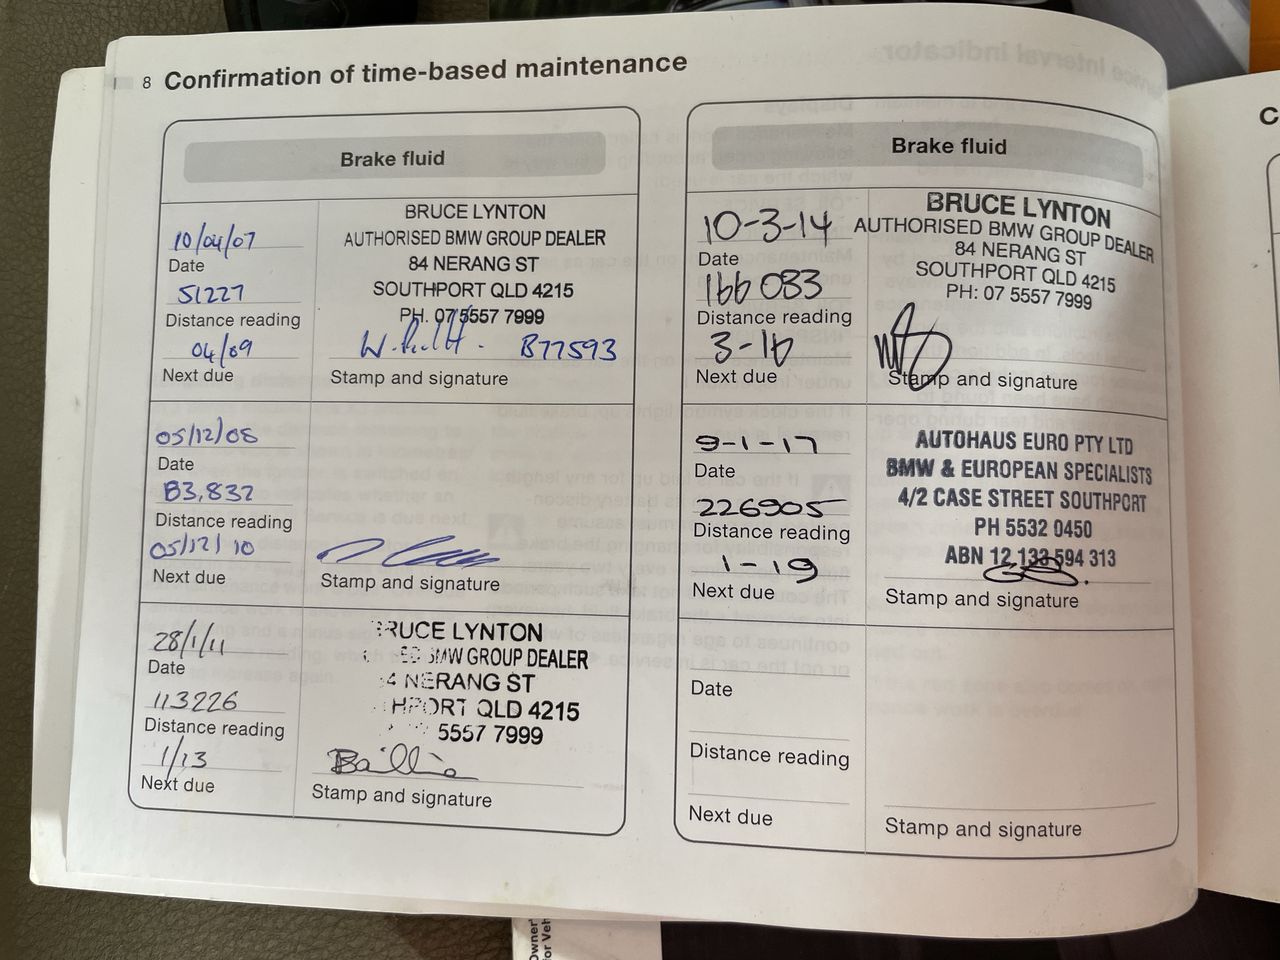 8 Confirmation of time-based maintenance
Brake fluid
10/04/07
Date
51227
Distance reading
04/09
Next due
BRUCE LYNTON
AUTHORISED BMW GROUP DEALER
84 NERANG ST
SOUTHPORT QLD 4215
PH. 07 5557 7999
B77593
Stamp and signature
05/12/08
Date
83,832
Distance reading
05/12/10
Next due
Stamp and signature
28/1/11
Date
113226
Distance reading
1/13
Next due
RUCE LYNTON
BMW GROUP DEALER
4 NERANG ST
HPORT QLD 4215
5557 7999
Stamp and signature
Brake fluid
10-3-14
Date
166 083
Distance reading
3-16
Next due
BRUCE LYNTON
AUTHORISED BMW GROUP DEALER
84 NERANG ST
SOUTHPORT QLD 4215
PH: 07 5557 7999
Stamp and signature
9-1-17
Date
226905
Distance reading
1-19
Next due
AUTOHAUS EURO PTY LTD
BMW & EUROPEAN SPECIALISTS
4/2 CASE STREET SOUTHPORT
PH 5532 0450
ABN 12 133 594 313
Stamp and signature
Date
Distance reading
Next due
Stamp and signature
C